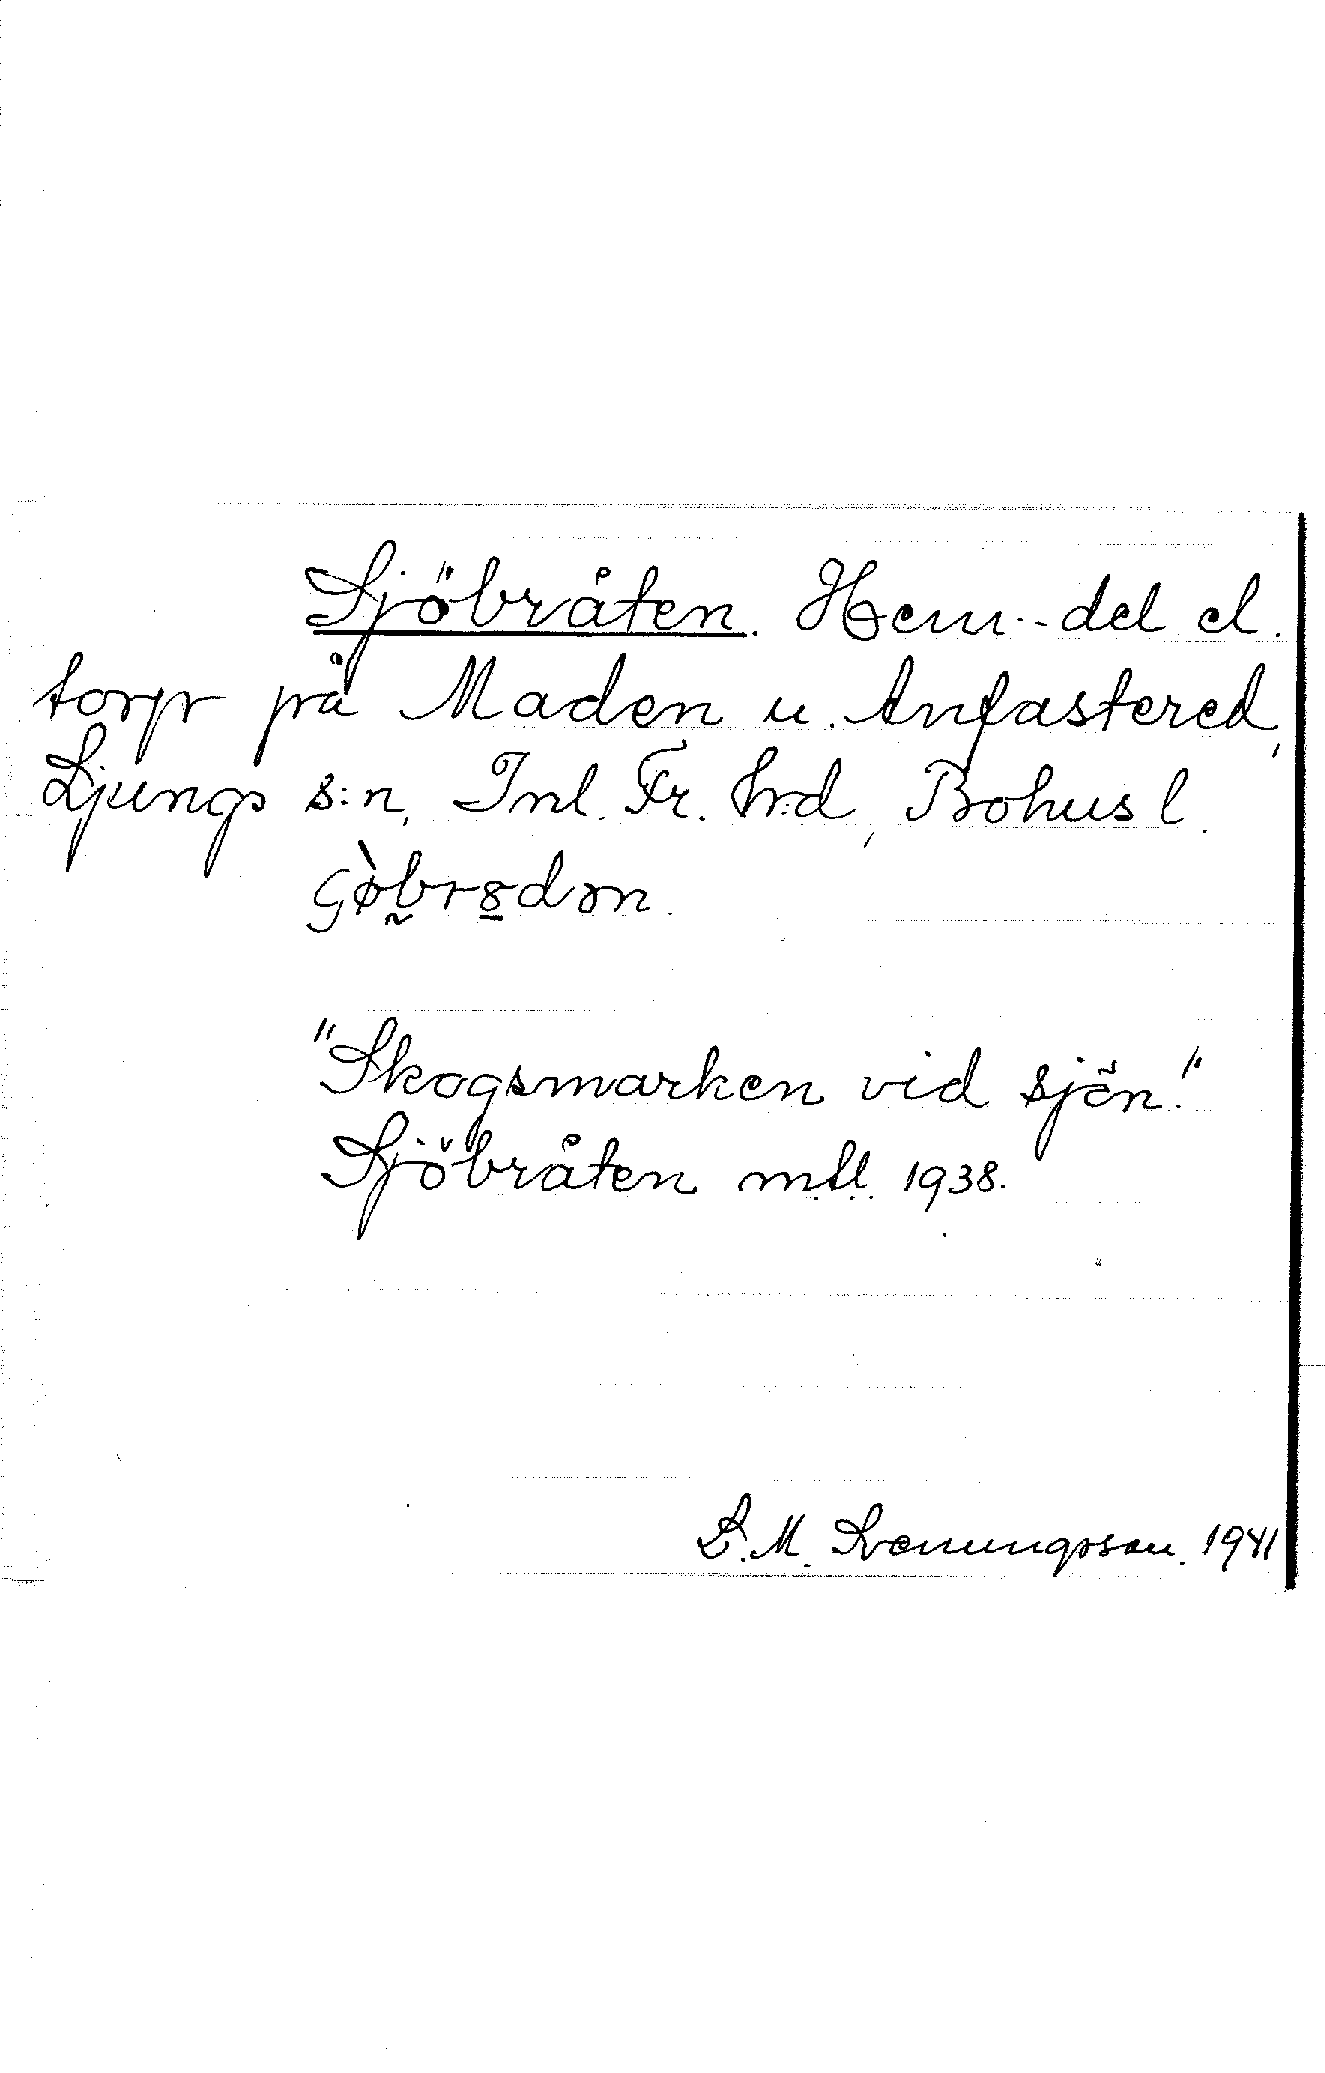 Sjöbråten. Hem.-del el.
torp på Maden u. Anfastered,
Ljungs s:n, Inl. Fr. hd, Bohusl.
"Skogsmarken vid sjön."
Sjöbråten mtl. 1938.
L. M. Svenungsson. 1941